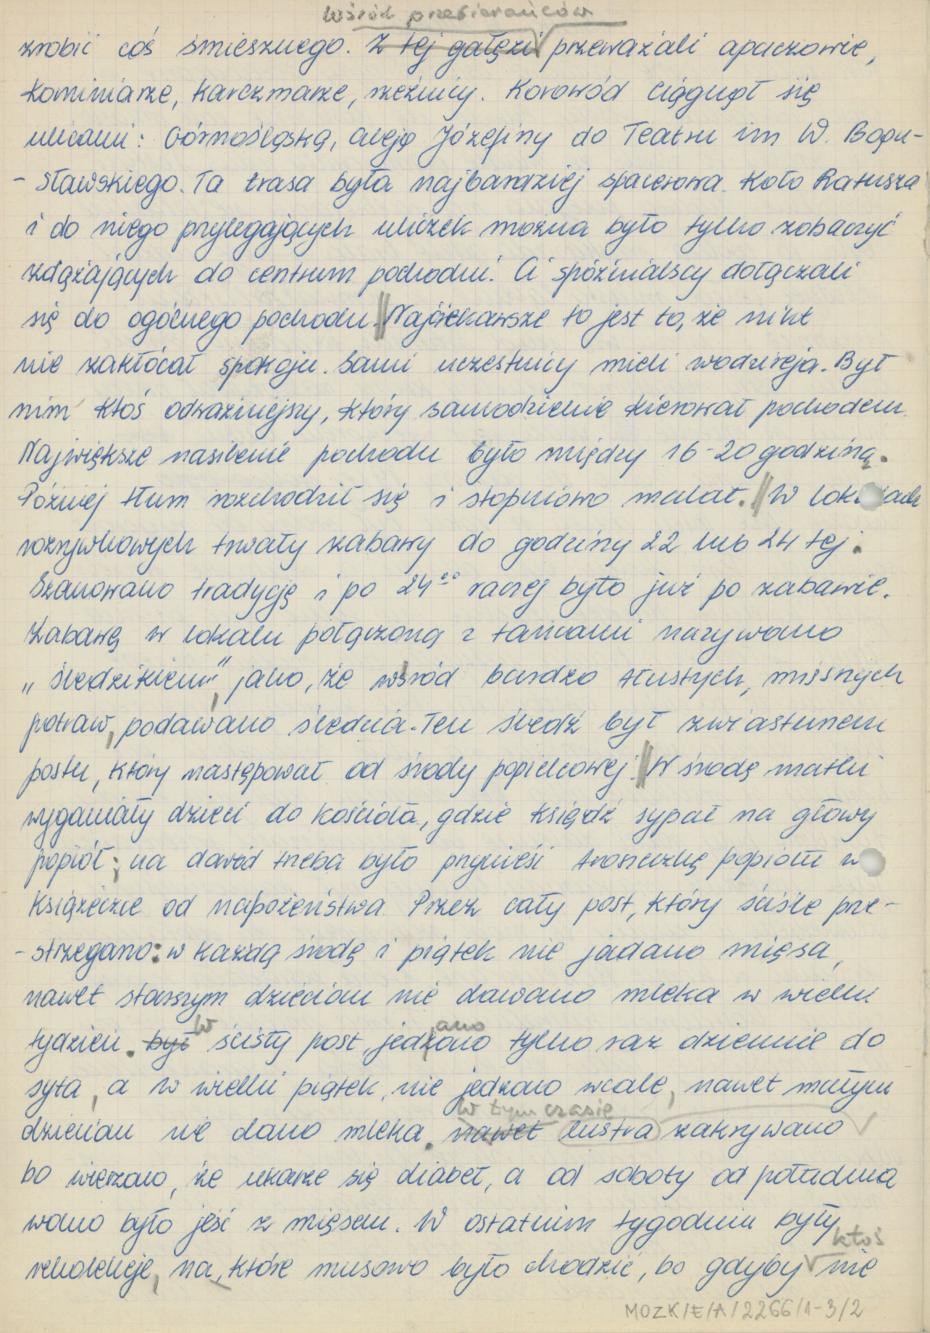 Wśród przebierańców
zrobić coś śmiesznego. Z tej gałęzi przeważali apaczowie,
kominiarze, karczmarze, rzeźnicy. Korowód ciągnął się
ulicami: Górnośląską, aleją Józefiny do Teatru im W. Bogu-
- sławskiego. Ta trasa była najbardziej spacerowa. Koło Ratusza
i do niego przylegających uliczek można było tylko zobaczyć
zdążających do centrum pochodni. Ci spóźnialscy dołączali
się do ogólnego pochodu. // Najciekawsze to jest to, że nikt
nie zakłócał spokoju. Sami uczestnicy mieli wodzireja. Był
nim ktoś odważniejszy, który samodzielnie kierował pochodem.
Największe nasilenie pochodu było między 16-20 godziną.
Później tłum rozchodził się i stopniowo malał. // W lokalach
rozrywkowych trwały zabawy do godziny 22 lub 24 tej.
Szanowano tradycję i po 24⁰⁰ raczej było już po zabawie.
Zabawę w lokalu połączoną z tańcami nazywano
„śledzikiem", jako, że wśród bardzo tłustych, mięsnych
potraw, podawano śledzia. Ten śledź był zwiastunem
postu, który następował od środy popielcowej. // W środę matki
wyganiały dzieci do kościoła, gdzie ksiądz sypał na głowy
popiół; na dowód trzeba było przynieść troszeczkę popiołu w
książeczce od nabożeństwa. Przez cały post, który ściśle prze-
- strzegano: w każdą środę i piątek nie jadano mięsa,
nawet starszym dzieciom nie dawano mleka w wielki
tydzień. był W ścisły post jedzono jadano tylko raz dziennie do
syta, a w wielki piątek, nie jedzono wcale, nawet małym
dzieciom nie dano mleka. nawet W tym czasie lustra zakrywano
bo wierzono, że ukaże się diabeł, a od soboty od południa
wolno było jeść z mięsem. W ostatnim tygodniu były
rekolekcje, na które musowo było chodzić, bo gdyby ktoś nie
MOZK/E/A/2266/1-3/2